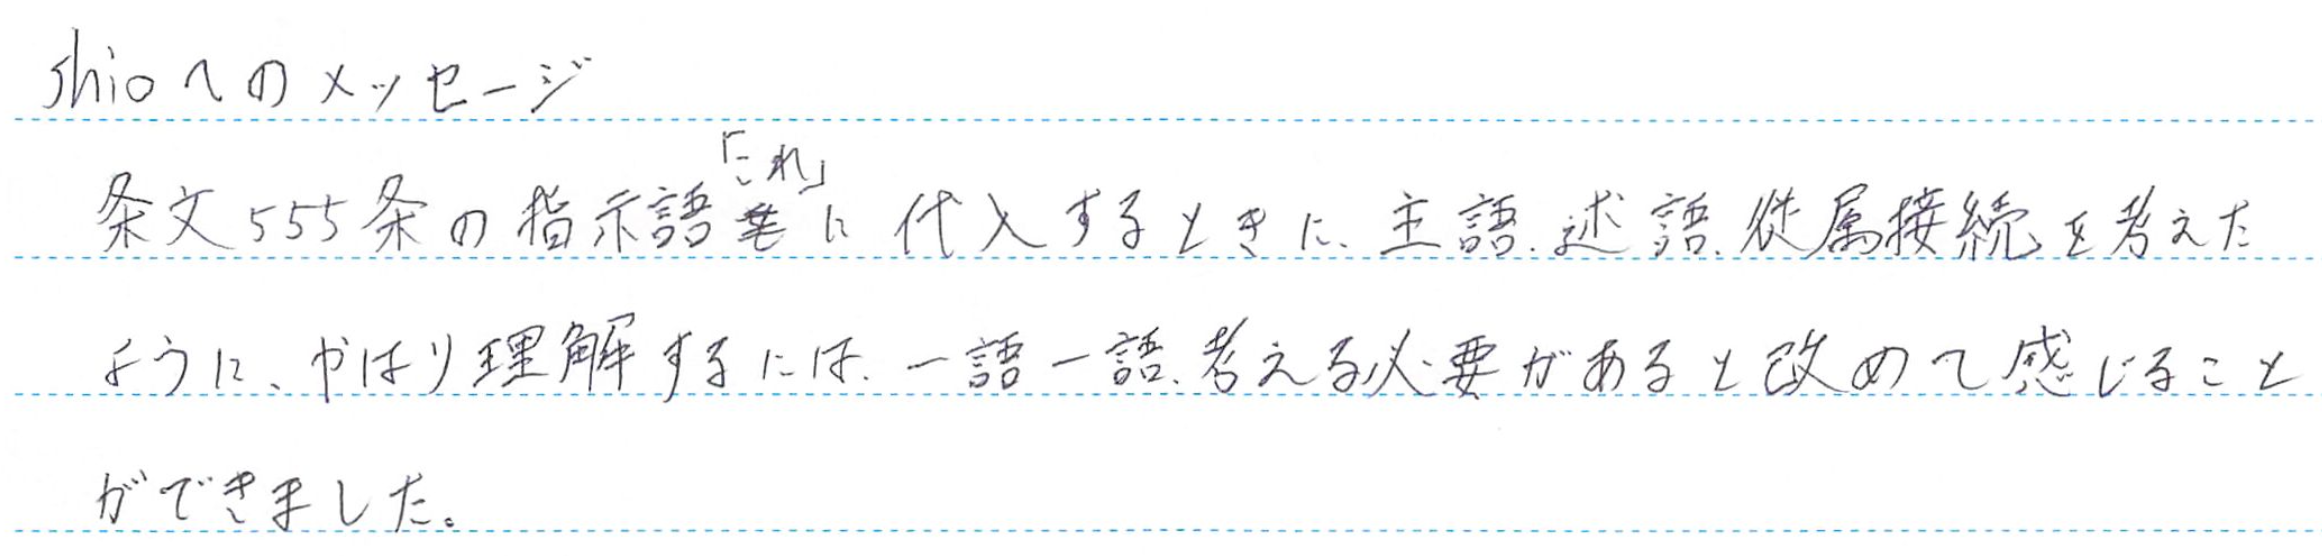 shioへのメッセージ
条文555条の指示語「これ」に代入するときに、主語、述語、従属接続を考えた
ように、やはり理解するには、一語一語、考える必要があると改めて感じること
ができました。